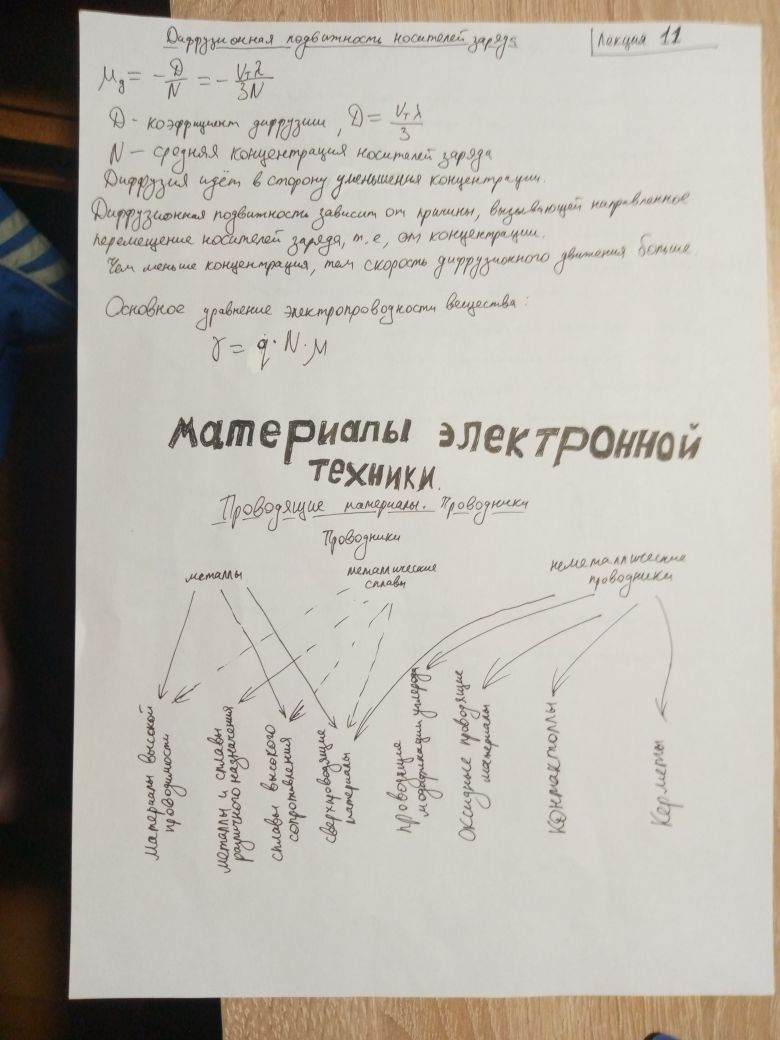 Диффузионная подвижность носителей заряда
Лекция 11
μд = -D/N = -Vтλ/3N
D - коэффициент диффузии, D = Vтλ/3
N – средняя концентрация носителей заряда
Диффузия идёт в сторону уменьшения концентрации.
Диффузионная подвижность зависит от причины, вызывающей направленное
перемещение носителей заряда, т.е, от концентрации.
Чем меньше концентрация, тем скорость диффузионного движения больше.
Основное уравнение электропроводности вещества:
γ = q · N · μ
Материалы электронной
техники.
Проводящие материалы. Проводники
Проводники
металлы
металлические
сплавы
неметаллические
проводники
Материалы высокой
проводимости
металлы и сплавы
различного назначения
сплавы высокого
сопротивления
сверхпроводящие
материалы
проводящие
модификации углерода
Оксидные проводящие
материалы
Контактоллы
Керметы